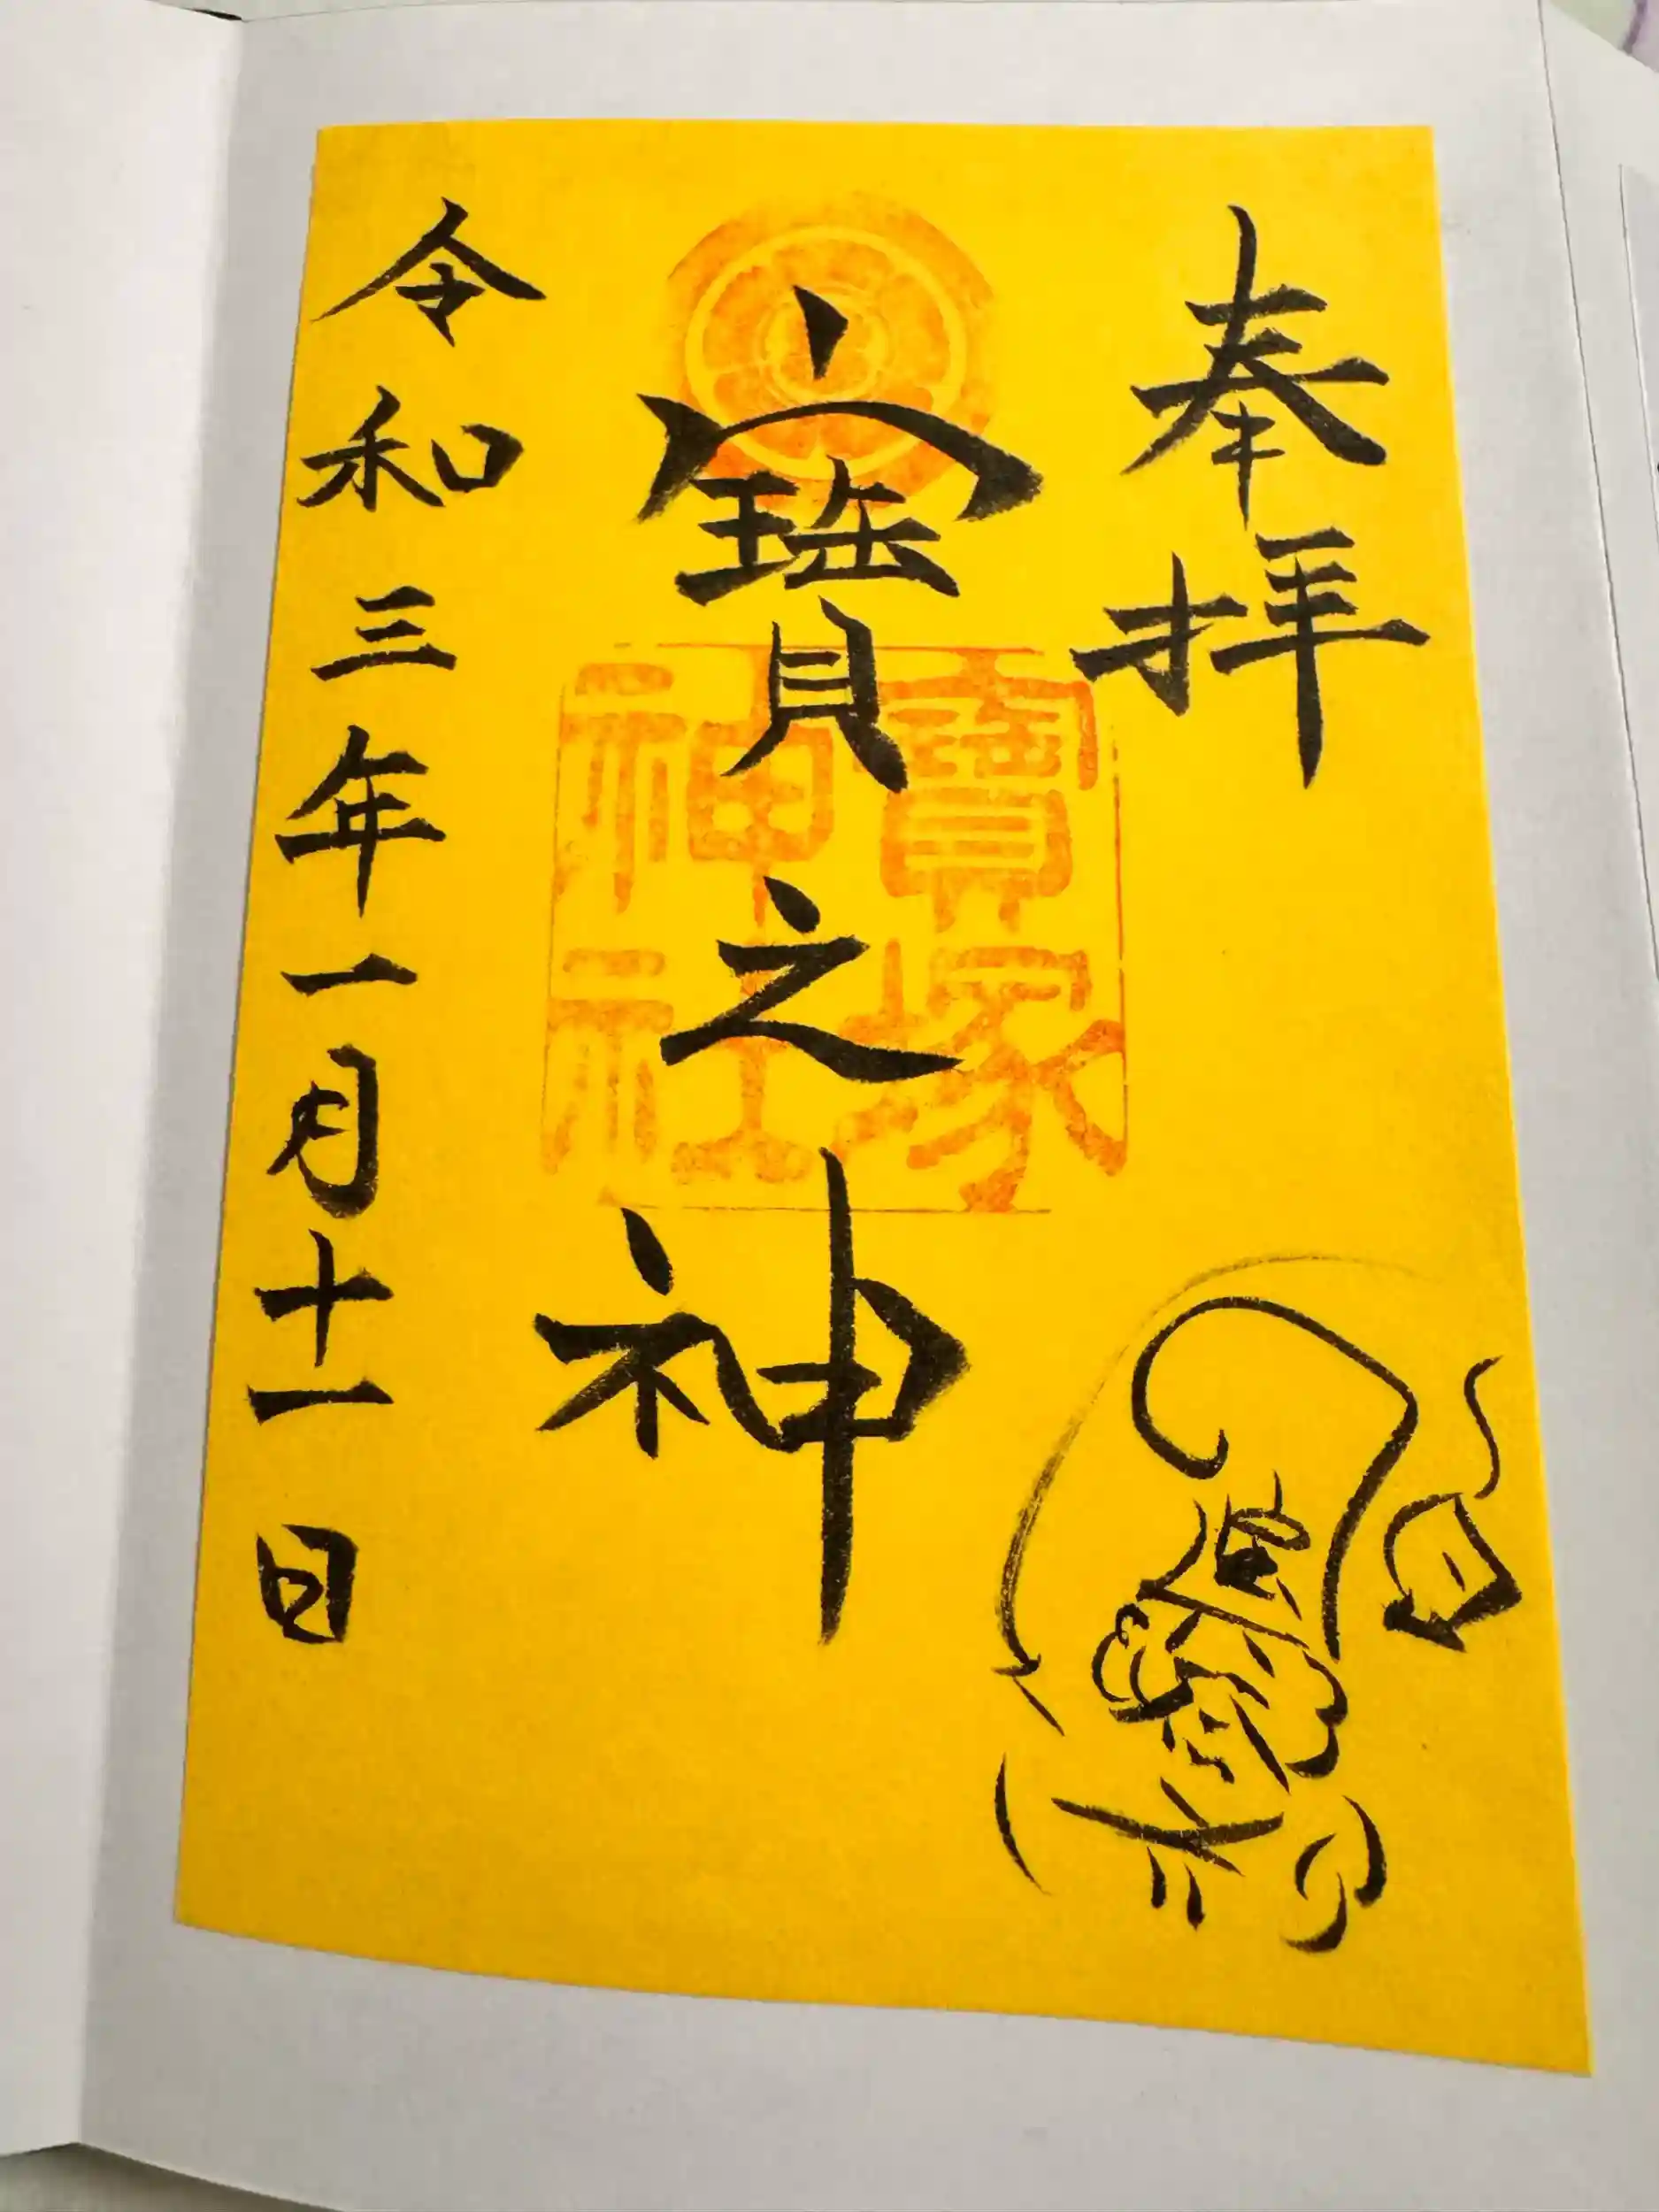 奉拝
寳之神
寳塚
神社
令和三年一月十一日